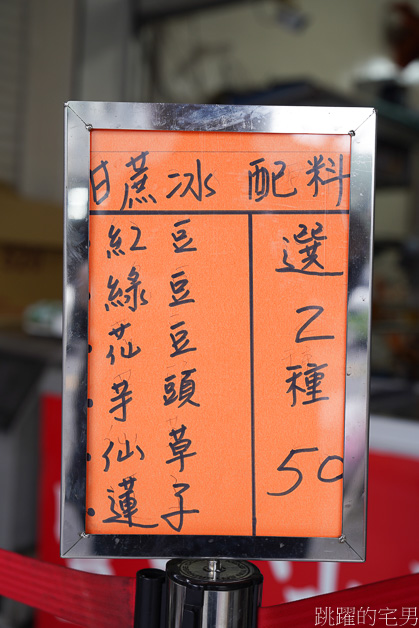 甘蔗冰 配料
紅豆
綠豆
花豆
芋頭
仙草
蓮子
選
2
種
50
跳躍的宅男